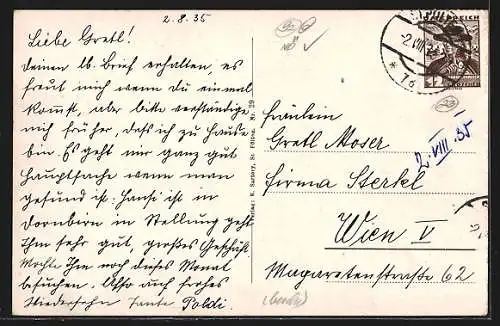 2.8.35
Liebe Gretl!
Deinen lb. Brief erhalten es
freut mich wenn du einmal
kommst, aber bitte verständige
mich früher, daß ich zu Hause
bin. Es geht mir ganz gut
Hauptsache wenn man
gesund ist. Hansi ist in
Dornbirn in Stellung geht
Ihm sehr gut, großes Geschäft
Möchte Ihm noch dieses Monat
besuchen. Also auf frohes
Wiedersehn Tante Poldi.
Verlag: K. Sartory, St. Pölten. Nr. 29
ÖSTERREICH
-2.VIII.35
* 1a
12
2. VIII 35
Fräulein
Gretl Moser
Firma Sterkl
Wien V
Magaretenstraße 62